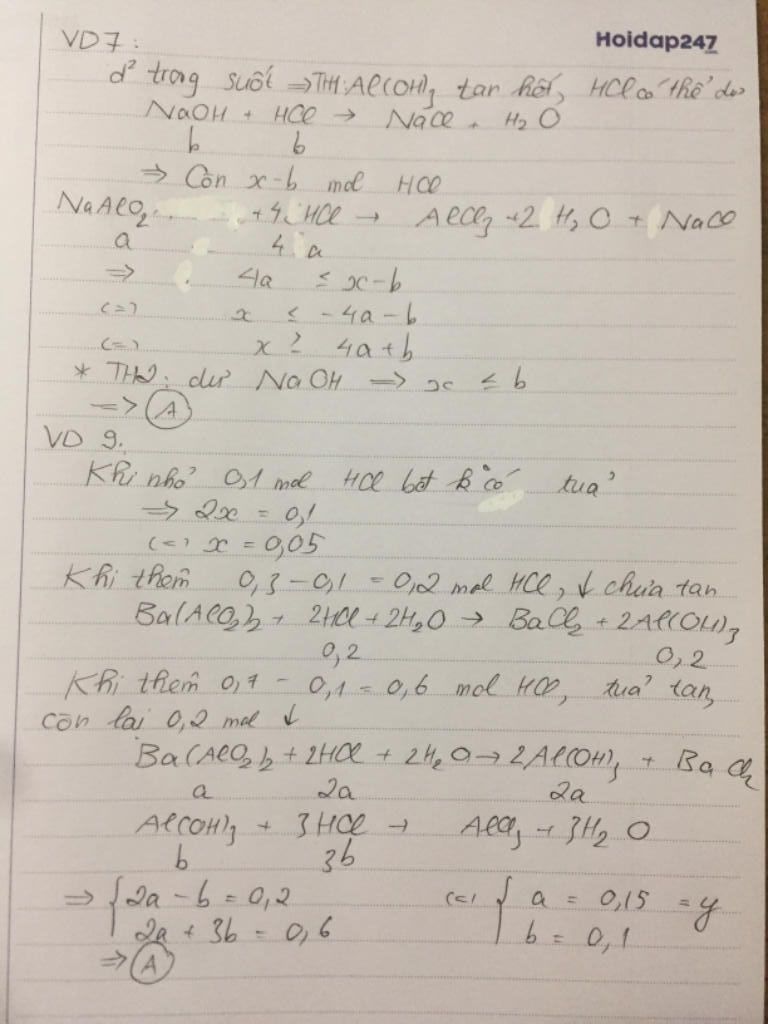 VD7:
Hoidap247
d² trong suốt ⇒ TH1: Al(OH)₃ tan hết, HCl có thể dư
NaOH + HCl → NaCl + H₂O
b b
⇒ Còn x-b mol HCl
NaAlO₂ + 4 HCl → AlCl₃ + 2 H₂O + NaCl
a 4 a
⇒ 4a ≤ x-b
(=) x ≤ -4a-b
(=) x ≥ 4a+b
* TH2: dư NaOH ⇒ x ≤ b
⇒ A
VD 9.
Khi nhỏ 0,1 mol HCl bắt có tủa
⇒ 2x = 0,1
(=) x = 0,05
Khi thêm 0,3-0,1 = 0,2 mol HCl, ↓ chưa tan
Ba(AlO₂)₂ + 2HCl + 2H₂O → BaCl₂ + 2Al(OH)₃
0,2 0,2
Khi thêm 0,7 - 0,1 = 0,6 mol HCl, tủa tan,
còn lại 0,2 mol ↓
Ba(AlO₂)₂ + 2HCl + 2H₂O → 2Al(OH)₃ + BaCl₂
a 2a 2a
Al(OH)₃ + 3HCl → AlCl₃ + 3H₂O
b 3b
⇒ { 2a - b = 0,2 (=) { a = 0,15 = y
2a + 3b = 0,6 b = 0,1
⇒ A